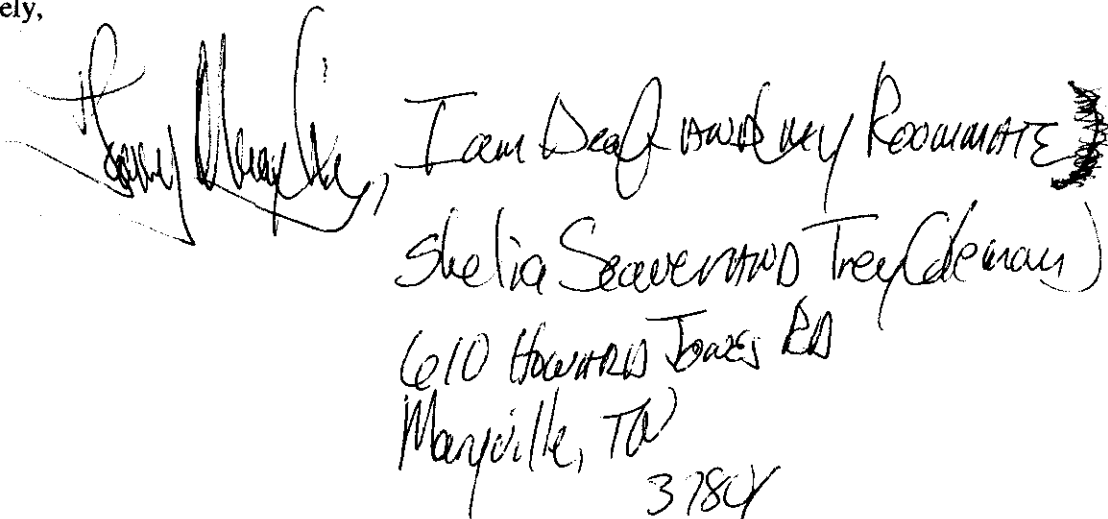 ely,
I am Deaf AND my ROOMMATE
Shelia Seaver AND Trey Coleman)
610 HOWARD JONES RD
Maryville, TN